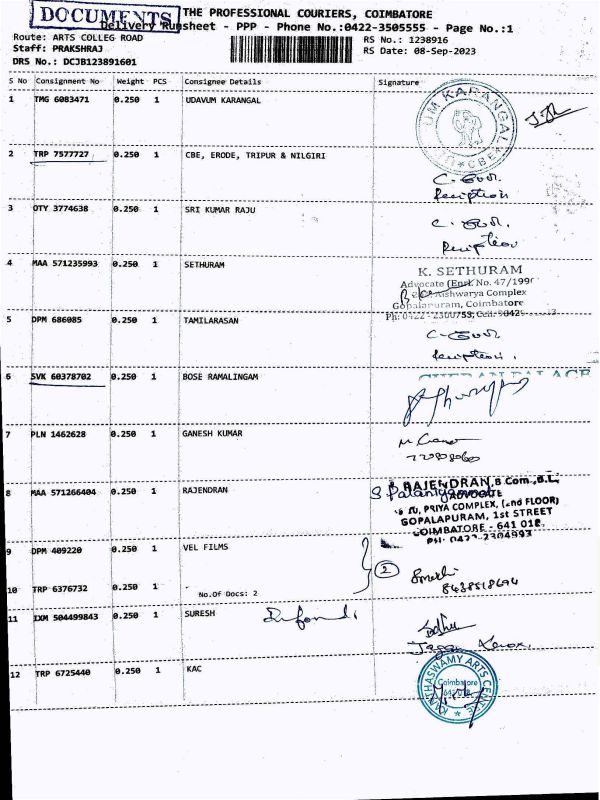 DOCUMENTS
THE PROFESSIONAL COURIERS, COIMBATORE
Delivery Runsheet - PPP - Phone No.:0422-3505555 - Page No.:1
Route: ARTS COLLEG ROAD
RS No.: 1238916
Staff: PRAKSHRAJ
RS Date: 08-Sep-2023
DRS No.: DCJB123891601
S No Consignment No Weight PCS Consignee Details Signature
1 TMG 6083471 0.250 1 UDAVUM KARANGAL
UM KARANGAL
CBE
2 TRP 7577727 0.250 1 CBE, ERODE, TRIPUR & NILGIRI
Reception
3 OTY 3774638 0.250 1 SRI KUMAR RAJU
Reception
4 MAA 571235993 0.250 1 SETHURAM
K. SETHURAM
Advocate (Enrl. No. 47/199
Aishwarya Complex
Gopalapuram, Coimbatore
Ph: 0422 - 2300753, Cell: 9842
5 DPM 686085 0.250 1 TAMILARASAN
Reception.
6 SVK 60378702 0.250 1 BOSE RAMALINGAM
7 PLN 1462628 0.250 1 GANESH KUMAR
8 MAA 571266404 0.250 1 RAJENDRAN
RAJENDRAN, B.Com.,B.L.
ADVOCATE
PRIYA COMPLEX, (2nd FLOOR)
GOPALAPURAM, 1st STREET
COIMBATORE - 641 018.
PH: 0422-2304993
9 DPM 409220 0.250 1 VEL FILMS
2
10 TRP 6376732 0.250 1 -
No.Of Docs: 2
11 IXM 504499843 0.250 1 SURESH
Jagan Xerox.
12 TRP 6725440 0.250 1 KAC
KASTHASWAMY ARTS CENTRE
Coimbatore